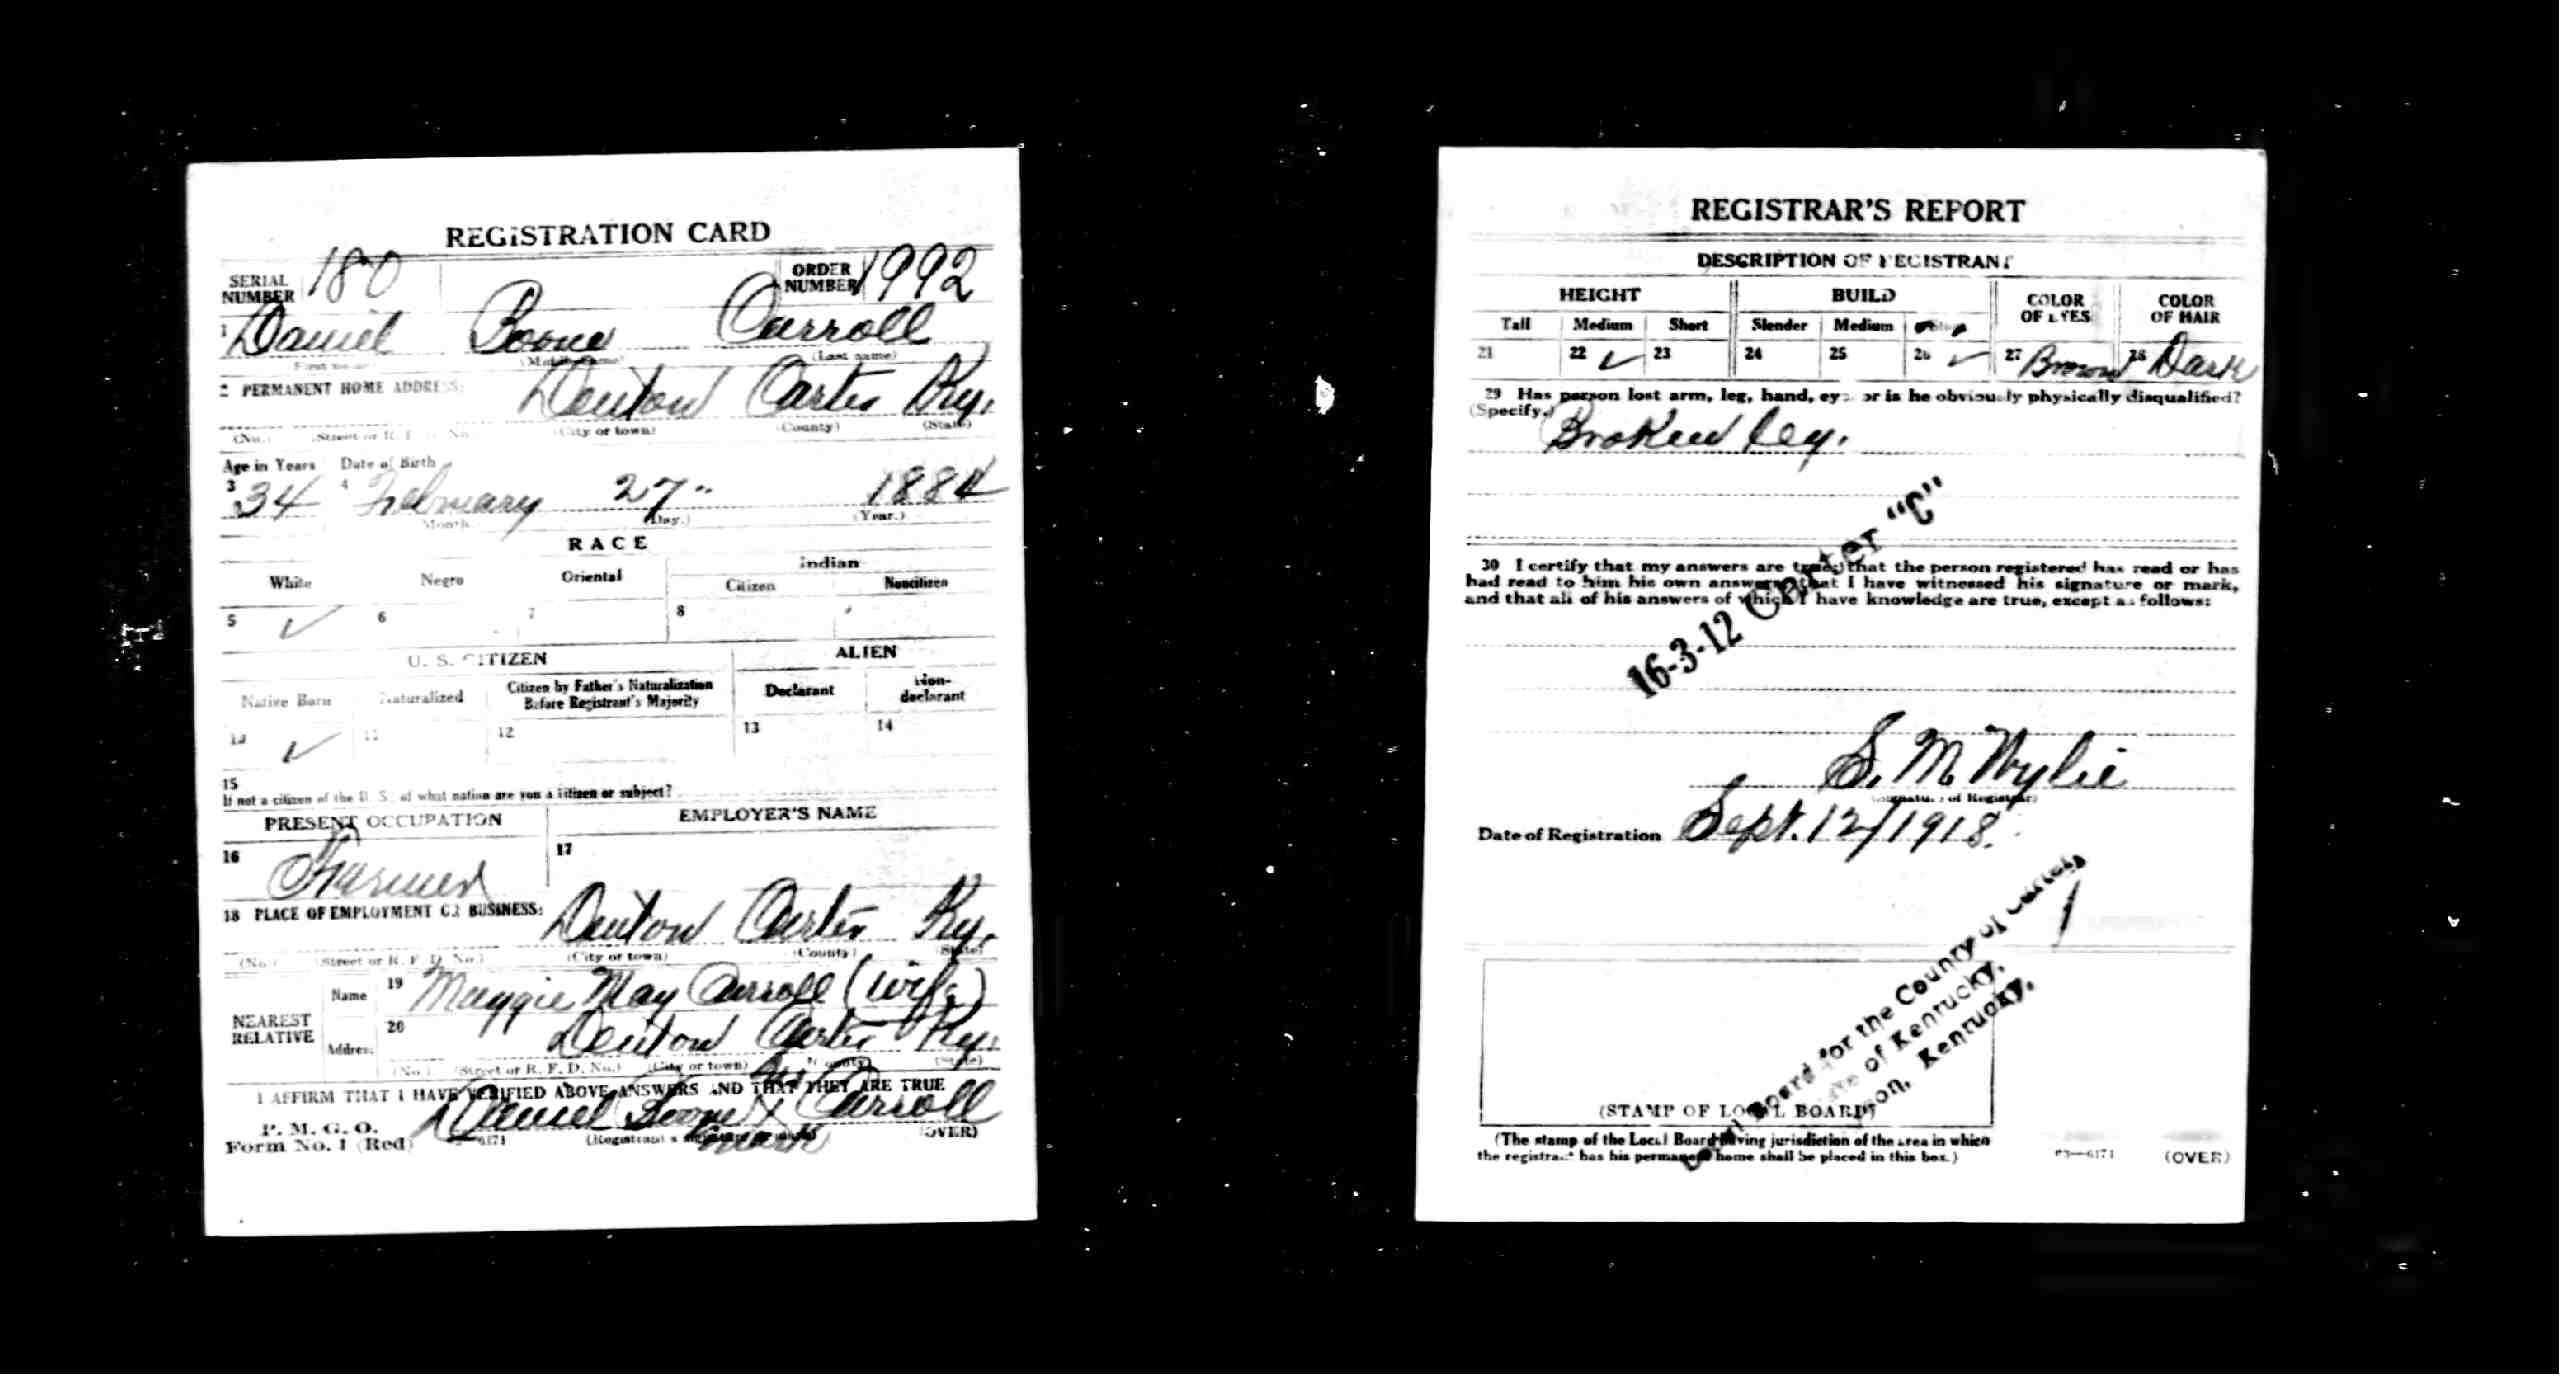 REGISTRATION CARD
SERIAL NUMBER 180 ORDER NUMBER 1992
1 Daniel Boone Carroll
(Middle name) (Last name)
2 PERMANENT HOME ADDRESS: Denton Carter Ky.
(No.) (Street or R. F. D. No.) (City or town) (County) (State)
Age in Years Date of Birth
3 34 4 February 27" 1884
Month. (Day.) (Year.)
RACE
White Negro Oriental Indian
Citizen Noncitizen
5 ✓ 6 7 8
U. S. CITIZEN ALIEN
Native Born Naturalized Citizen by Father's Naturalization Before Registrant's Majority Declarant Non-declarant
10 ✓ 11 12 13 14
15
If not a citizen of the U. S., of what nation are you a citizen or subject?
PRESENT OCCUPATION EMPLOYER'S NAME
16 Farmer 17
18 PLACE OF EMPLOYMENT OR BUSINESS: Denton Carter Ky.
(No.) (Street or R. F. D. No.) (City or town) (County) (State)
NEAREST RELATIVE
Name 19 Maggie May Carroll (wife)
Address 20 Denton Carter Ky.
(No.) (Street or R. F. D. No.) (City or town) (County) (State)
I AFFIRM THAT I HAVE VERIFIED ABOVE ANSWERS AND THAT THEY ARE TRUE
P. M. G. O.
Form No. 1 (Red)
his
Daniel Boone X Carroll
mark
6171 (Registrant's signature or mark) (OVER)
REGISTRAR'S REPORT
DESCRIPTION OF REGISTRANT
HEIGHT BUILD COLOR OF EYES COLOR OF HAIR
Tall Medium Short Slender Medium
21 22 ✓ 23 24 25 26 ✓ 27 Brown 28 Dark
29 Has person lost arm, leg, hand, eye, or is he obviously physically disqualified?
(Specify.) Broken leg.
16-3-12 Carter "C"
30 I certify that my answers are true, that the person registered has read or has
had read to him his own answers, that I have witnessed his signature or mark,
and that all of his answers of which I have knowledge are true, except as follows:
S. M. Wylie
(Signature of Registrar)
Date of Registration Sept. 12/1918.
1
Local Board for the County of Carter,
State of Kentucky,
Kentucky.
(STAMP OF LOCAL BOARD)
(The stamp of the Local Board having jurisdiction of the area in which
the registrant has his permanent home shall be placed in this box.)
03—6171 (OVER)